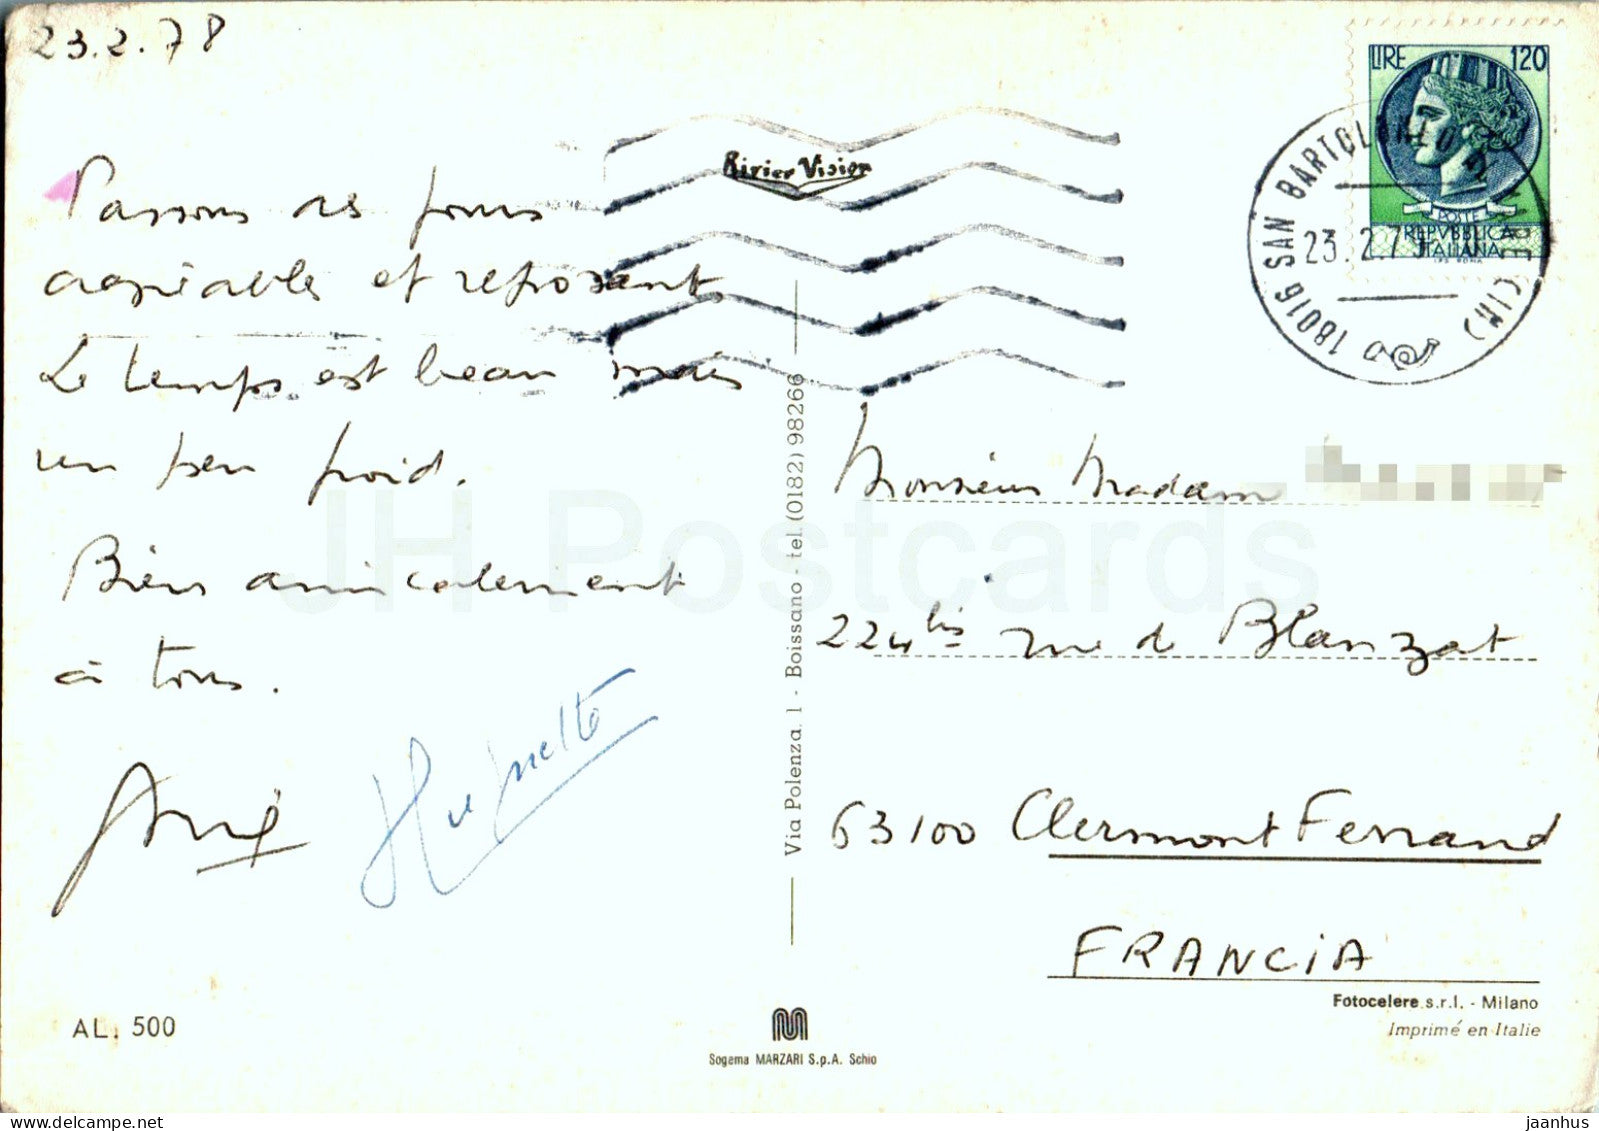 23.2.78
LIRE 120
POSTE
REPVBBLICA
ITALIANA
I.P.S. ROMA
18016 SAN BARTOLOMEO AL MARE (IM)
23.2.7
Rivier Vision
Passons des jours
agréables et reposants
Le temps est beau mais
un peu froid.
Bien amicalement
à tous.
Huguette
Monsieur Madam
224 bis rue de Blanzat
63100 Clermont Ferrand
FRANCIA
Via Polenza, 1 - Boissano - tel. (0182) 98266
JH Postcards
AL. 500
Sogema MARZARI S.p.A. Schio
Fotocelere s.r.l. - Milano
Imprimé en Italie
jaanhus - delcampe.net